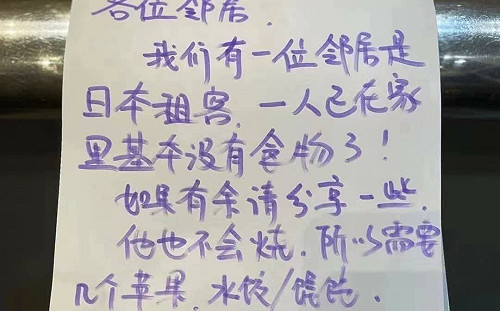 各位邻居.
我们有一位邻居是
日本租客,一人已在家
里基本没有食物了!
如果有余请分享一些.
他也不会烧.所以需要
几个苹果,水饺/馄饨.